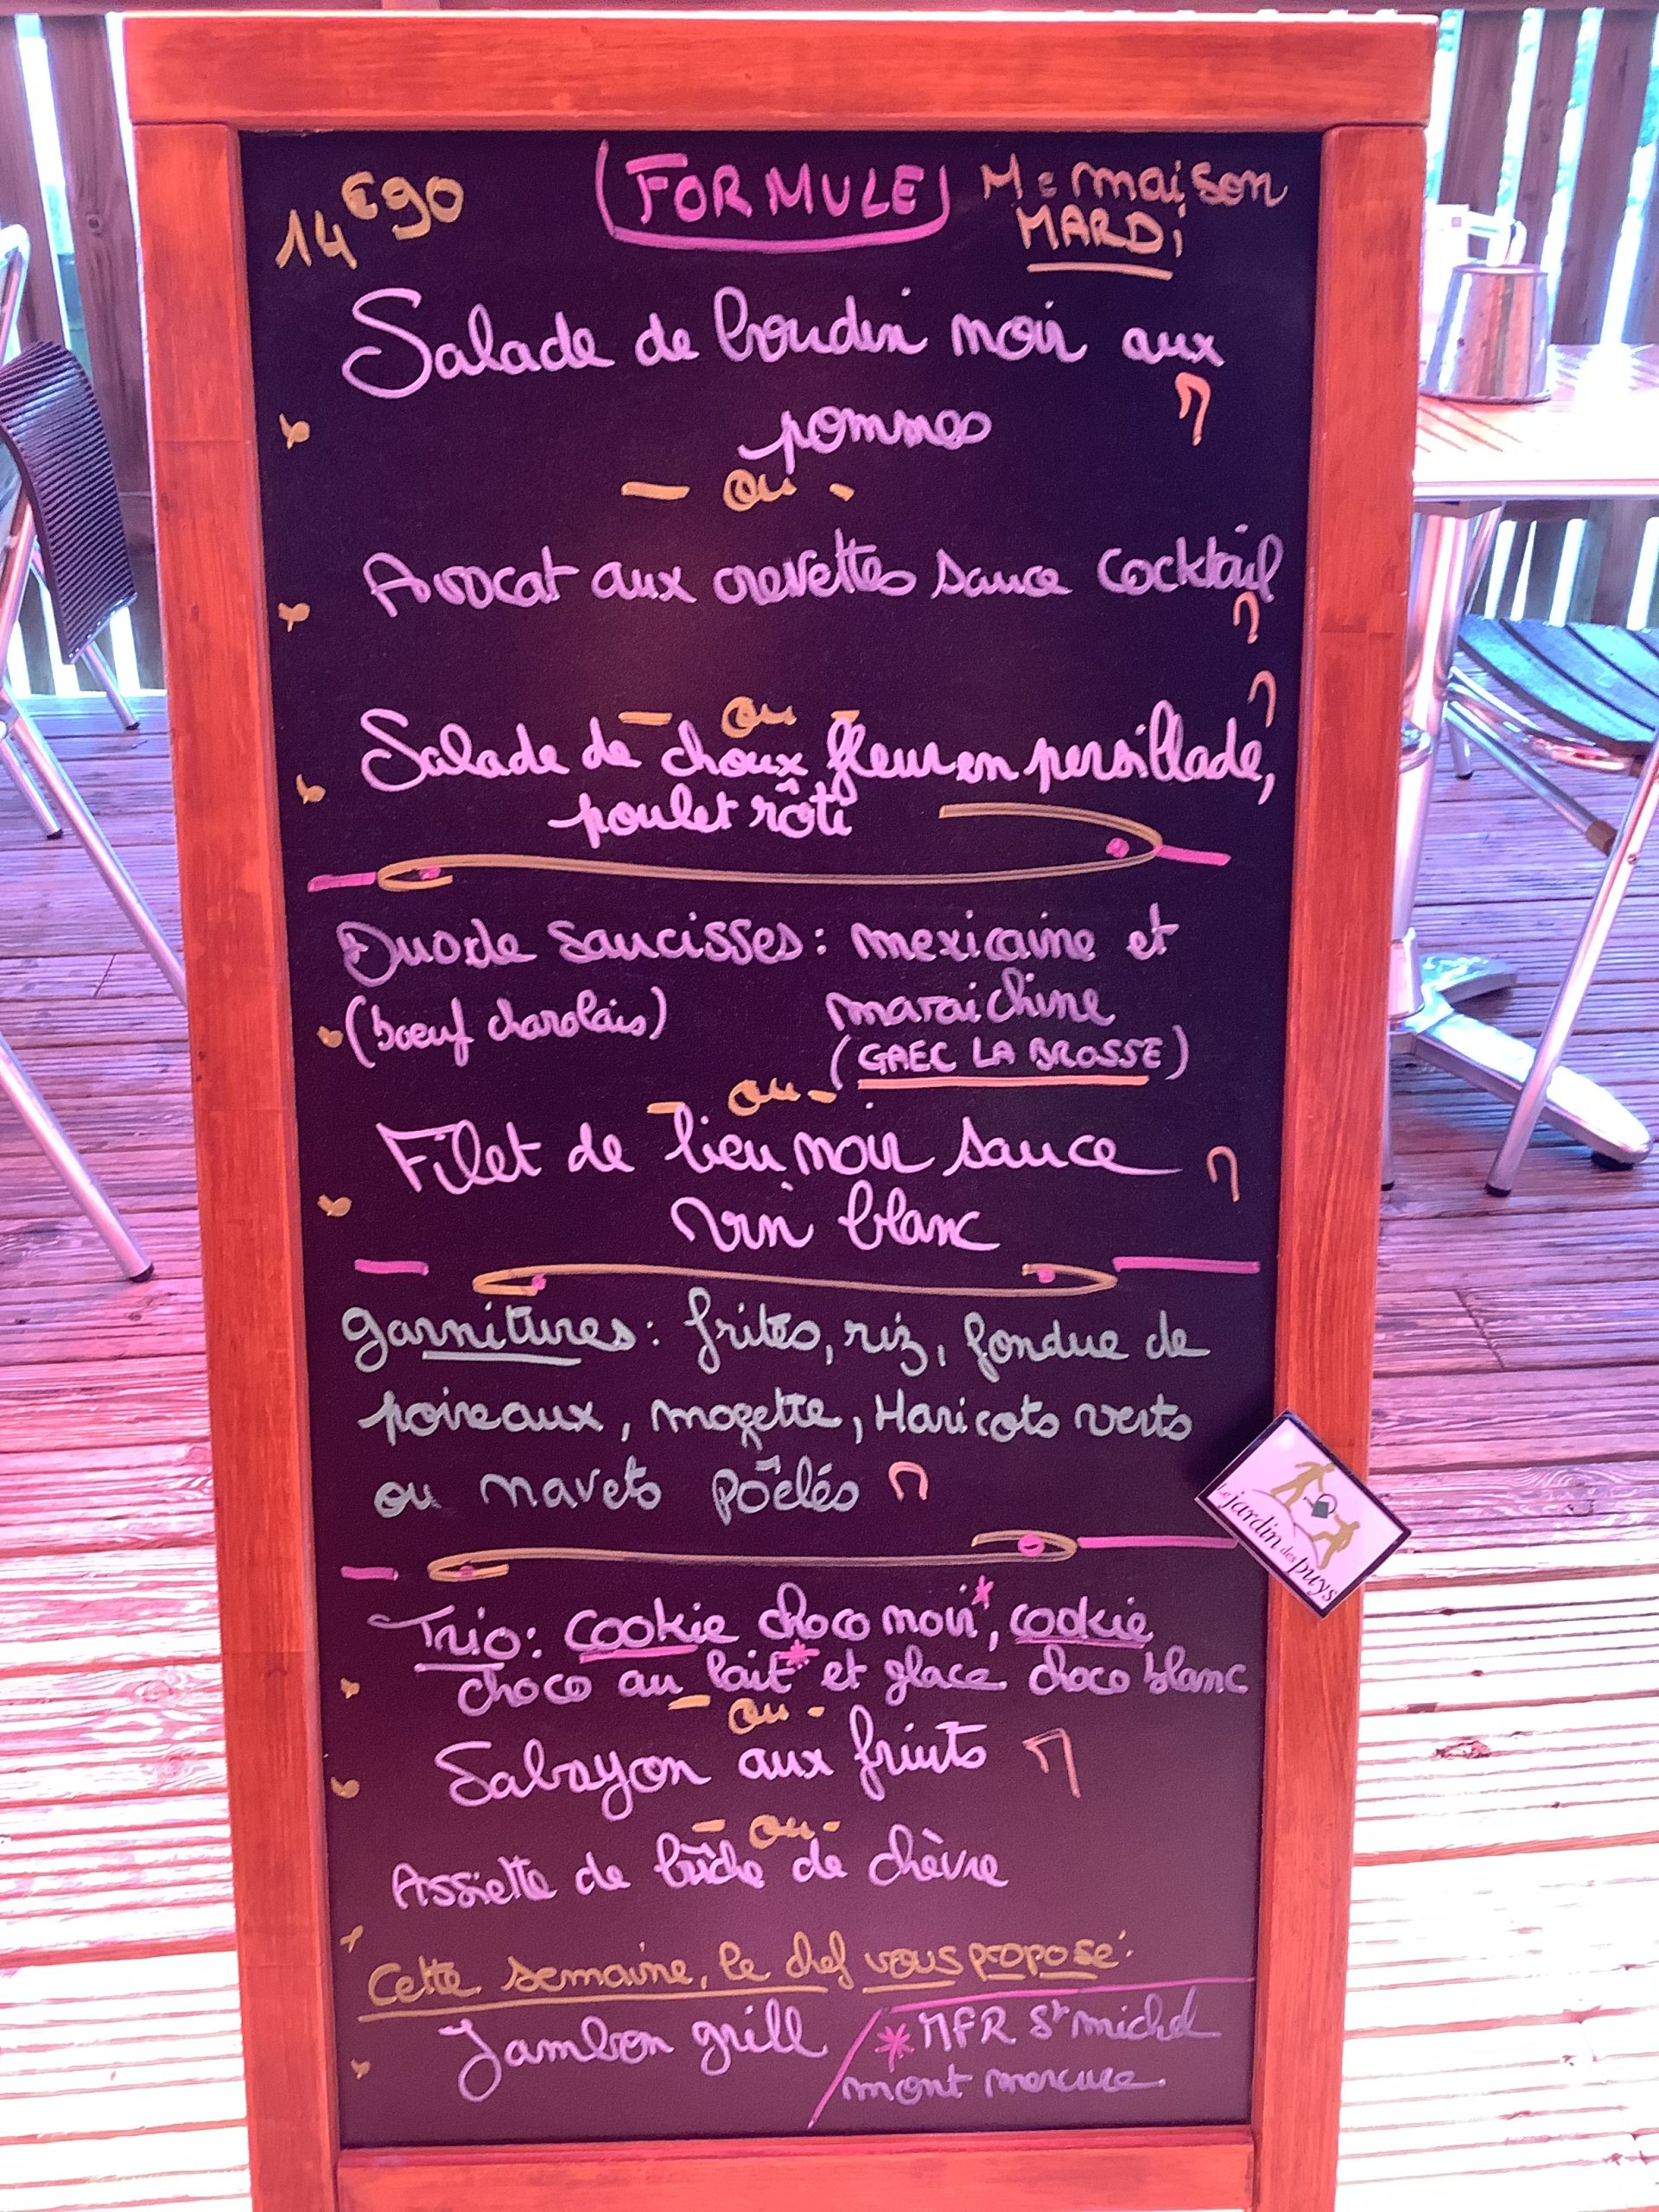 14€90 FORMULE M = maison
MARDi
Salade de boudin noir aux
pommes M
- ou -
Avocat aux crevettes sauce cocktail
M
- ou - M
Salade de choux fleur en persillade,
poulet rôti
Duo de saucisses : mexicaine et
(boeuf charolais) maraichine
(GAEC LA BROSSE)
- ou -
Filet de lieu noir sauce M
vin blanc
garnitures : frites, riz, fondue de
poireaux, mogette, Haricots verts
ou navets poêlés M
Trio : cookie choco noir*, cookie
choco au lait* et glace choco blanc
- ou -
Sabayon aux fruits M
- ou -
Assiette de bûche de chèvre
Cette semaine, le chef vous propose :
Jambon grill / * MFR St michel
mont mercure.
Le jardin des puys